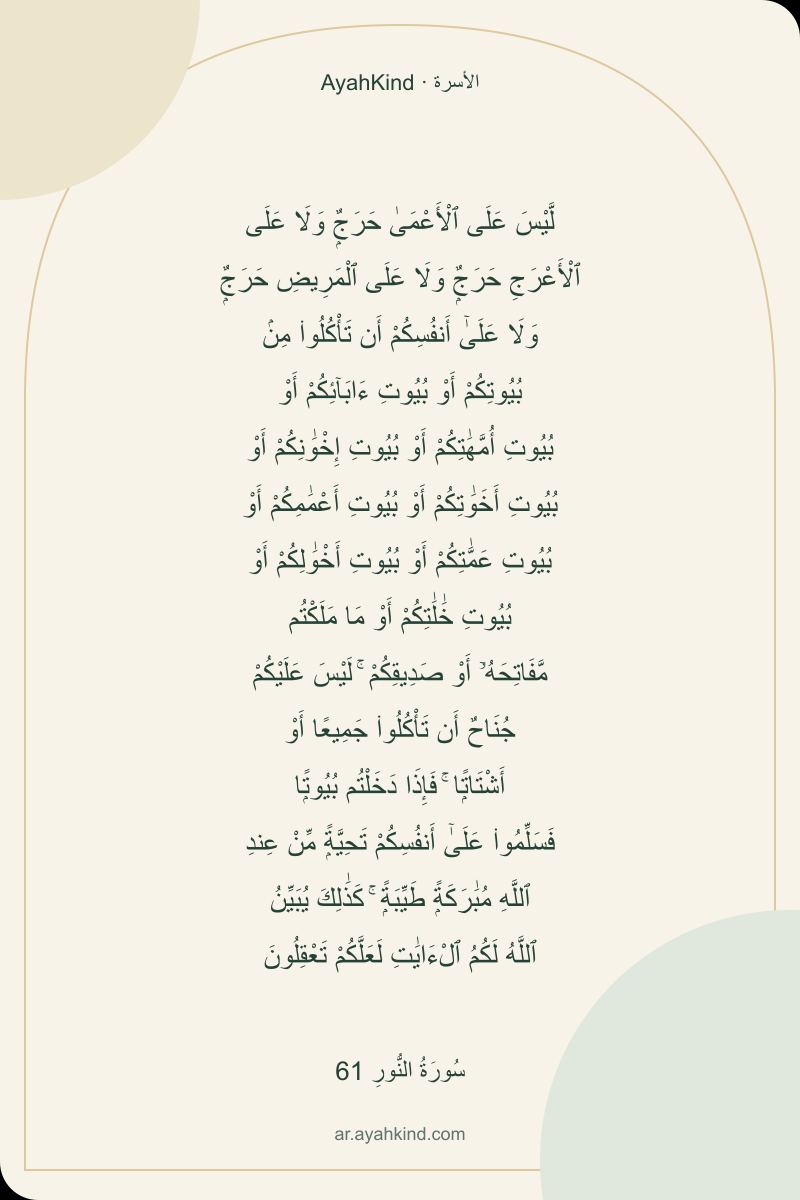 AyahKind · الأسرة
لَّيْسَ عَلَى ٱلْأَعْمَىٰ حَرَجٌۭ وَلَا عَلَى
ٱلْأَعْرَجِ حَرَجٌۭ وَلَا عَلَى ٱلْمَرِيضِ حَرَجٌۭ
وَلَا عَلَىٰٓ أَنفُسِكُمْ أَن تَأْكُلُوا۟ مِنۢ
بُيُوتِكُمْ أَوْ بُيُوتِ ءَابَآئِكُمْ أَوْ
بُيُوتِ أُمَّهَـٰتِكُمْ أَوْ بُيُوتِ إِخْوَٰنِكُمْ أَوْ
بُيُوتِ أَخَوَٰتِكُمْ أَوْ بُيُوتِ أَعْمَـٰمِكُمْ أَوْ
بُيُوتِ عَمَّـٰتِكُمْ أَوْ بُيُوتِ أَخْوَٰلِكُمْ أَوْ
بُيُوتِ خَـٰلَـٰتِكُمْ أَوْ مَا مَلَكْتُم
مَّفَاتِحَهُۥٓ أَوْ صَدِيقِكُمْ ۚ لَيْسَ عَلَيْكُمْ
جُنَاحٌ أَن تَأْكُلُوا۟ جَمِيعًا أَوْ
أَشْتَاتًۭا ۚ فَإِذَا دَخَلْتُم بُيُوتًۭا
فَسَلِّمُوا۟ عَلَىٰٓ أَنفُسِكُمْ تَحِيَّةًۭ مِّنْ عِندِ
ٱللَّهِ مُبَـٰرَكَةًۭ طَيِّبَةًۭ ۚ كَذَٰلِكَ يُبَيِّنُ
ٱللَّهُ لَكُمُ ٱلْـَٔايَـٰتِ لَعَلَّكُمْ تَعْقِلُونَ
سُورَةُ النُّورِ 61
ar.ayahkind.com